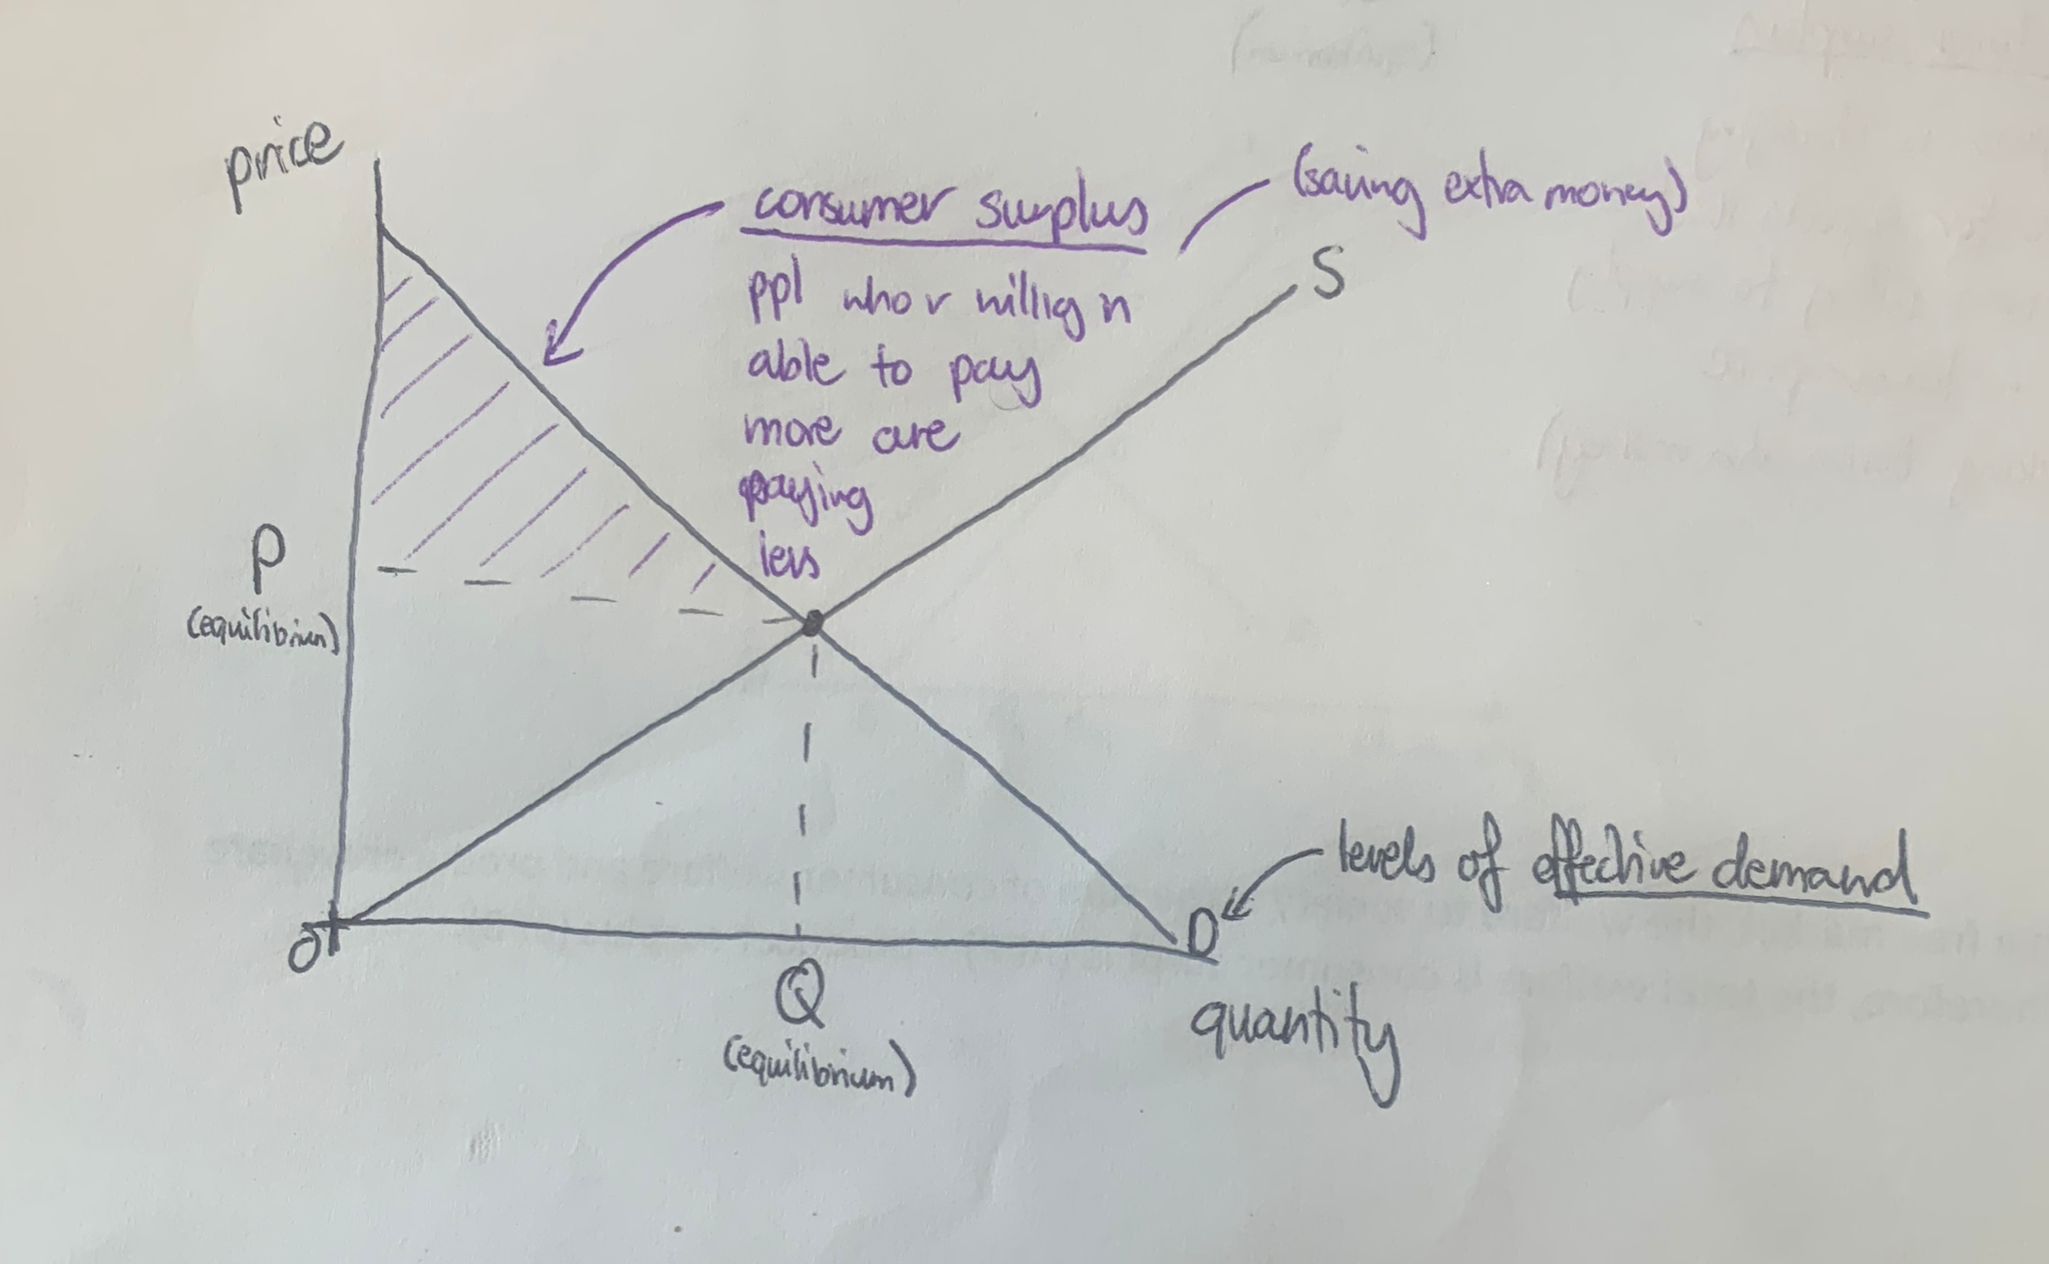 price
consumer surplus
(saving extra money)
ppl who r willig n
able to pay
more are
paying
less
S
P
(equilibrium)
levels of effective demand
D
O
Q
(equilibrium)
quantity